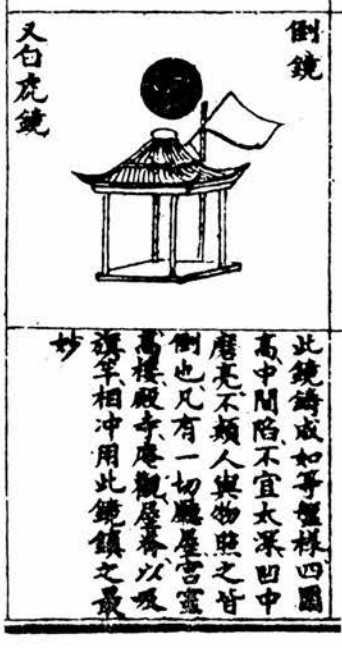 倒鏡
又白虎鏡
此鏡鑄成如等盤樣四圍
高中間陷不宜太深凹中
磨亮不類人與物照之皆
倒也凡有一切廳屋宮室
高樓殿寺庵觀屋脊以及
旗竿相冲用此鏡鎮之最
妙